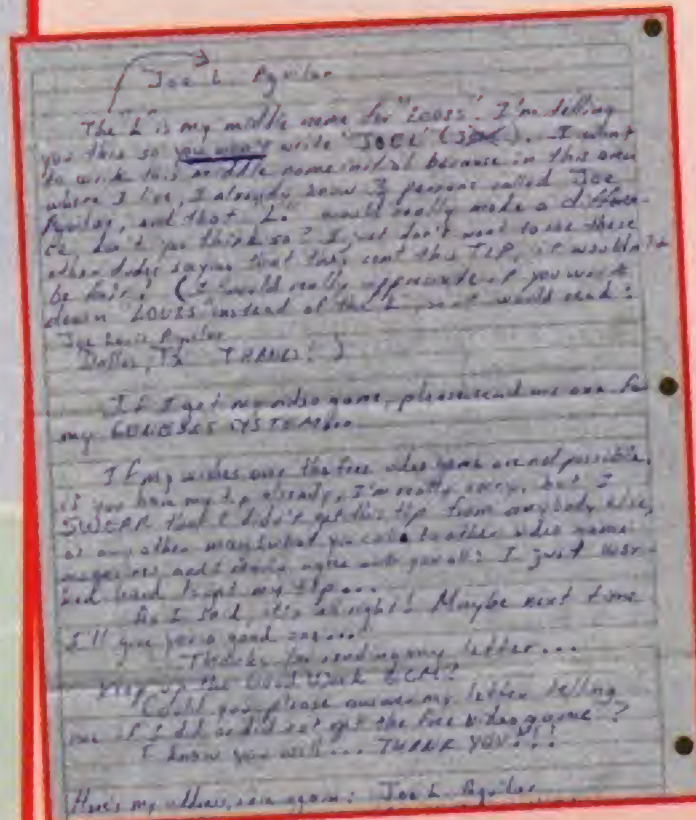 Joe L. Aguilar
The "L" is my middle name for "LOUIS". I'm telling
you this so you won't write "JOEL" (JOEL). I want
to write this middle name initial because in this area
where I live, I already know 3 persons called Joe
Aguilar, and that "L" would really made a differen-
ce, don't you think so? I just don't want to see these
other dudes saying that they sent this TIP, it wouldn't
be fair! (I would really appreciate if you write
down "LOUIS" instead of the L, so it would read:
Joe Louis Aguilar
Dallas, TX THANKS!)
If I get my video game, please send me one for
my GENESIS SYSTEM
If my wishes the free video game are not possible,
if you have my tip already, I'm really sorry, but I
SWEAR that I didn't get this tip from anybody else,
or any other what you call to other video game
magazines I just wor-
ked hard my tip...
As I said, it's alright! Maybe next time
I'll give you a good one...
Thanks for reading my letter...
Keep up the Good Work EGM!
Could you please answer my letter telling
me if I did or did not get the free video game?
I know you will... THANK YOU!!!
Here's my address, once again: Joe L. Aguilar